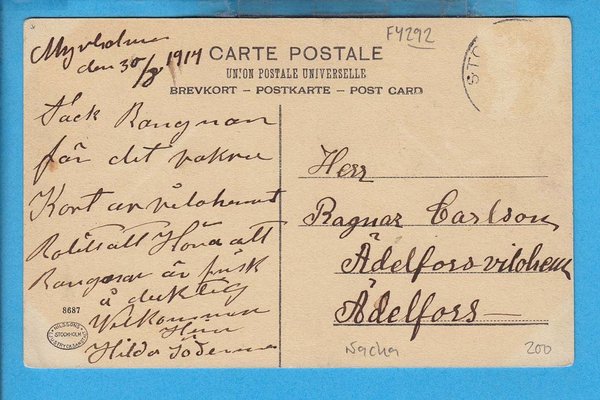 F4292
Myrholmen
den 30/8 1914
CARTE POSTALE
UNION POSTALE UNIVERSELLE
BREVKORT - POSTKARTE - POST CARD
STO
Tack Rangnar
för det vakra
Kort av vilohemmet
Rolitt att Höra att
Rangnar är frisk
å duktig
Välkommen
Hem
Hilda Söderman
Herr
Ragnar Carlson
Ädelfors vilohem
Ädelfors
8687
NILSSONS
STOCKHOLM
Nacka
200